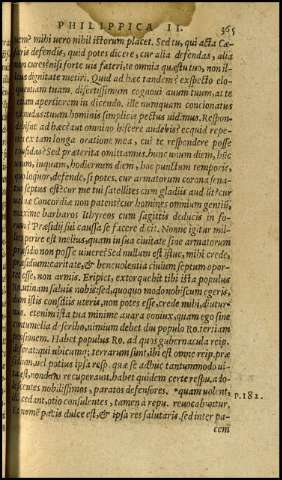 PHILIPPICA II. 365
nem? mihi uero nihil istorum placet. Sed tu, qui acta Cæ-
saris defendis, quid potes dicere, cur alia defendas, alia
non cures? nisi forte uis fateri, te omnia quæstu tuo, non il-
lius dignitate metiri. Quid ad hæc tandem? expecto elo-
quentiam tuam. disertissimum cognoui auum tuum, at te
etiam apertiorem in dicendo. ille nunquam concionatus
nudus. tuum hominis simplicis pectus uidimus. Respon-
debisne ad hæc? aut omnino hiscere audebis? ecquid repe-
ries ex tam longa oratione mea, cui te respondere posse
confidas? Sed præterita omittamus. hunc unum diem, hũc
unum, inquam, hodiernum diem, hoc punctum temporis,
quo loquor, defende, si potes. cur armatorum corona sena-
tus septus est? cur me tui satellites cum gladiis audiũt? cur
ualuæ Concordiæ non patent? cur homines omnium gentiũ,
maxime barbaros Ithyreos cum sagittis deducis in fo-
rum? Præsidii sui caussa se facere dicit. Nonne igitur mil-
lies perire est melius, quam in sua ciuitate sine armatorum
præsidio non posse uiuere? Sed nullum est istuc, mihi crede,
præsidium. caritate, & beneuolentia ciuium septum opor-
tet esse, non armis. Eripiet, extorquebit tibi ista populus
Ro. utinam saluis nobis: sed, quoquo modo nobiscum egeris,
dum istis consiliis uteris, non potes esse, crede mihi, diutur-
nus. etenim ista tua minime auara coniux, quam ego sine
contumelia describo, nimium debet diu populo Ro. tertiam
pensionem. Habet populus Ro. ad quos gubernacula reip.
deferat: qui ubicunq; terrarum sunt, ibi est omne reip. præ-
sidium, uel potius ipsa resp. quæ se adhuc tantummodo ul-
ta est, nondum recuperauit. habet quidem certe resp. ado-
lescentes nobilissimos, paratos defensores. *quam uolent,
cedant, otio consulentes, tamen à repu. reuocabuntur,
& nomẽ pacis dulce est, & ipsa res salutaris. sed inter pa-
cem
P. 182.